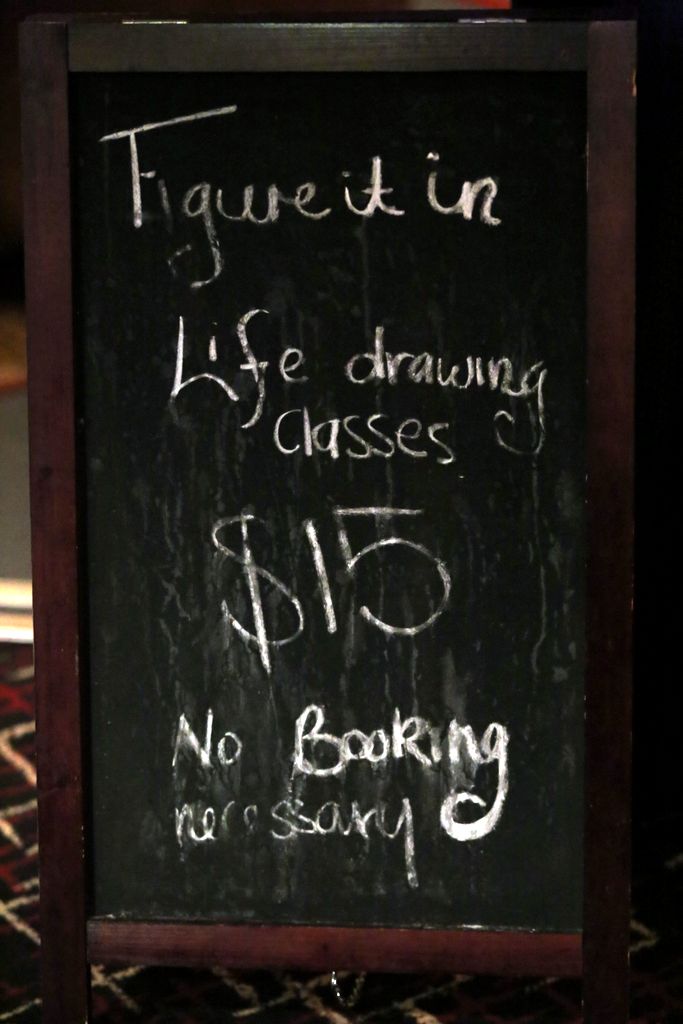 Figure it in
Life drawing
classes
$15
No Booking
necessary